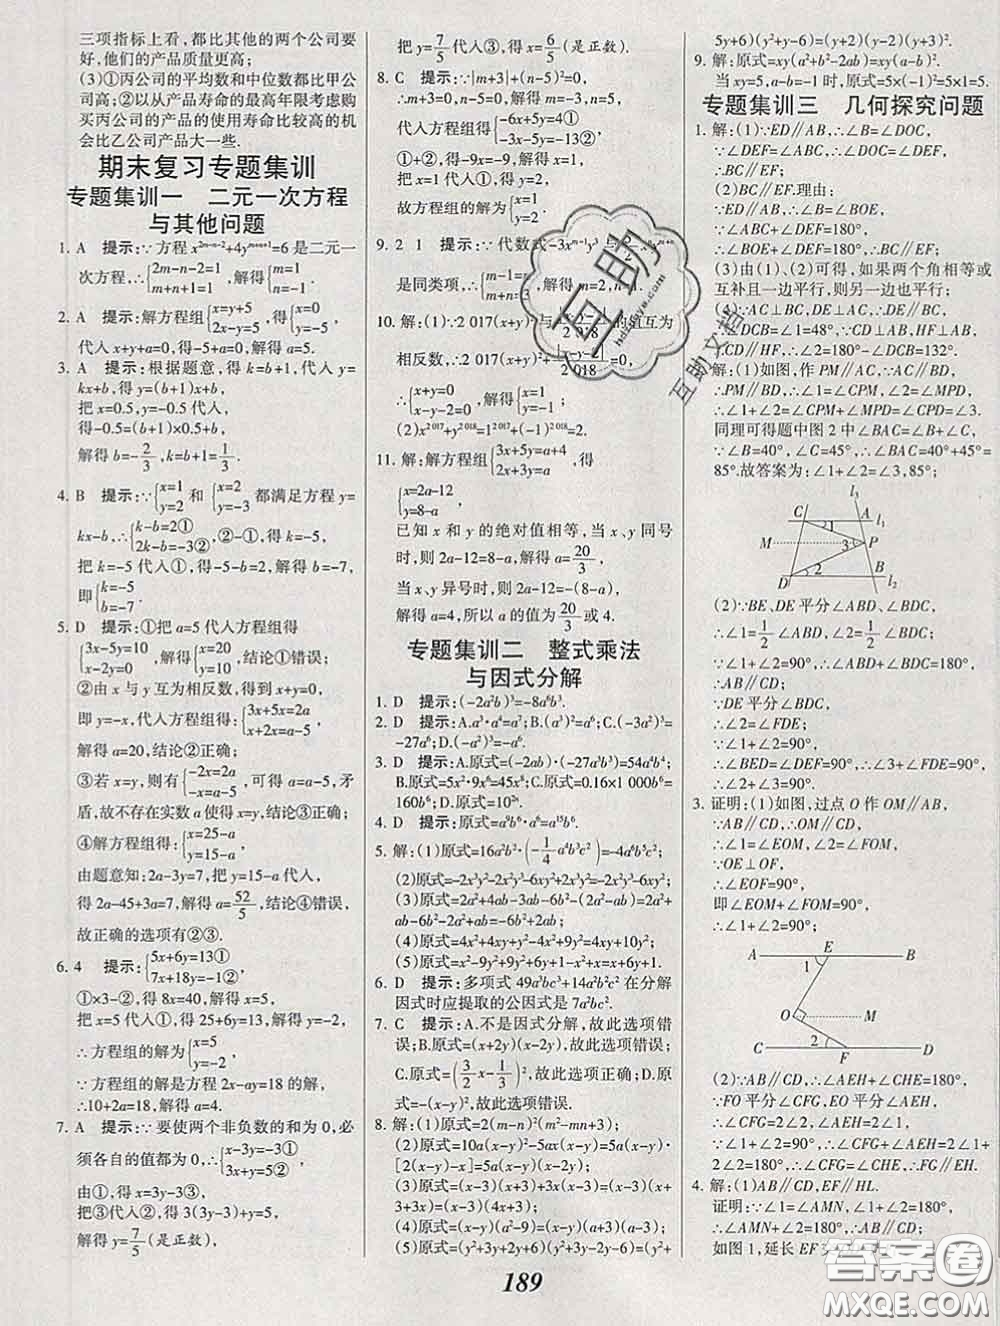 三项指标上看,都比其他的两个公司要
好,他们的产品质量更高;
(3)①丙公司的平均数和中位数都比甲公
司高;②以从产品寿命的最高年限考虑购
买丙公司的产品的使用寿命比较高的机
会比乙公司产品大一些.
期末复习专题集训
专题集训一 二元一次方程
与其他问题
1. A 提示:∵方程x^{2m-n-2}+4y^{m+n+1}=6是二元一
次方程,∴{2m-n-2=1 m+n+1=1,解得{m=1 n=-1.
2. A 提示:解方程组{x=y+5 2x-y=5,得{x=0 y=-5.
代入x+y+a=0,得0-5+a=0,解得a=5.
3. A 提示:根据题意,得k=b+1,代入y=
kx+b,得y=(b+1)x+b.
把x=0.5,y=-0.5代入,
得-0.5=(b+1)×0.5+b,
解得b=-2/3,k=b+1=1/3.
4. B 提示:∵{x=1 y=2和{x=2 y=-3都满足方程y=
kx-b,∴{k-b=2① 2k-b=-3②,②-①得k=-5,
把k=-5代入①得,-5-b=2,解得b=-7,
即{k=-5 b=-7.
5. D 提示:①把a=5代入方程组得
{3x-5y=10 x-2y=0,解得{x=20 y=10,结论①错误;
②由x与y互为相反数,得到x+y=0,
即y=-x,代入方程组得:{3x+5x=2a x+2x=a-5,
解得a=20,结论②正确;
③若x=y,则有{-2x=2a -x=a-5,可得a=a-5,矛
盾,故不存在实数a使得x=y,结论③正确;
④解方程组得:{x=25-a y=15-a,
由题意知:2a-3y=7,把y=15-a代入
得2a-45+3a=7,解得a=52/5,结论④错误,
故正确的选项有②③.
6. 4 提示:{5x+6y=13① 7x+18y=-1②,
①×3-②,得8x=40,解得x=5,
把x=5代入①,得25+6y=13,解得y=-2,
∴方程组的解为{x=5 y=-2,
∵方程组的解是方程2x-ay=18的解,
∴10+2a=18,解得a=4.
7. A 提示:∵要使两个非负数的和为0,必
须各自的值都为0,∴{x-3y=-3① 3x+y=5②
由①,得x=3y-3③,
把③代入②,得3(3y-3)+y=5,
解得y=7/5(是正数),
把y=7/5代入③,得x=6/5(是正数).
8. C 提示:∵|m+3|+(n-5)²=0,
∴m+3=0,n-5=0,解得m=-3,n=5,
代入方程组得{-6x+5y=4① -3x-5y=-13②,
①+②得:-9x=-9,解得x=1,
把x=1代入①,得y=2,
故方程组的解为{x=1 y=2.
9. 2 1 提示:∵代数式-3x^{m-1}y³与
是同类项,∴{m-1=,解得m=2,n=1.
10. 解:(1)∵2 017(x+y)²与 的值互为
相反数,∴2 017(x+y)²+ =0,
∴{x+y=0 x-y-2=0,解得{x=1 y=-1.
(2)x^{2 017}+y^{2 018}=1^{2 017}+(-1)^{2 018}=2.
11. 解:解方程组{3x+5y=a+4 2x+3y=a,得
{x=2a-12 y=8-a.
已知x和y的绝对值相等,当x、y同号
时,则2a-12=8-a,解得a=20/3,
当x、y异号时,则2a-12=-(8-a),
解得a=4,所以a的值为20/3或4.
专题集训二 整式乘法
与因式分解
1. D 提示:(-2a²b)³=-8a⁶b³.
2. D 提示:A.a³·a⁴=a⁷;B.(a³)²=a⁶;C.(-3a²)³=
-27a⁶;D.(-a²)³=-a⁶.
3. D 提示:A.原式=(-2ab)·(-27a³b³)=54a⁴b⁴;
B.原式=5x²·9x⁶=45x⁸;C.原式=0.16×1 000b⁶=
160b⁶;D.原式=10^{2n}.
4. D 提示:原式=a⁹b⁶·a⁶=a¹⁵b⁶.
5. 解:(1)原式=16a²b²·(-1/4a⁴b³c²)=-4a⁶b⁵c²;
(2)原式=-2x³y²-2x²y³-2x³y²+2x²y³=-4x³y²;
(3)原式=2a²+4ab-3ab-6b²-2a²+ab=2a²+
ab-6b²-2a²+ab=-6b²+2ab;
(4)原式=4x²+4xy-4x²+9y²=4xy+10y²;
(5)原式=6x²y÷6xy-6xy+1=x-6xy+1.
6. D 提示:多项式49a³bc³+14a²b²c²在分解
因式时应提取的公因式是7a²bc².
7. C 提示:A.不是因式分解,故此选项错
误;B.原式=(x+2y)(x-2y),故此选项错误;
C.原式=(3/2x-1/3)²,故此选项正确;D.原
式=-(x-y)²,故此选项错误.
8. 解:(1)原式=2(m-n)²(m²-mn+3);
(2)原式=10a(x-y)²-5ax(x-y)=5a(x-y)·
[2(x-y)-x]=5a(x-y)(x-2y);
(3)原式=(x-3)(x+3)+3x(x-3)=(x-3)·
(x+3+3x)=(x-3)(4x+3);
(4)原式=(x-y)(a²-9)=(x-y)(a+3)(a-3);
(5)原式=(y²+3y+2y+6)(y²+3y-2y-6)=(y²+
5y+6)(y²+y-6)=(y+2)(y-2)(y+3)².
9. 解:原式=xy(a²+b²-2ab)=xy(a-b)²,
当xy=5,a-b=-1时,原式=5×(-1)²=5×1=5.
专题集训三 几何探究问题
1. 解:(1)∵ED∥AB,∴∠B=∠DOC,
∵∠DEF=∠ABC,∴∠DEF=∠DOC,
∴BC∥EF;
(2)BC∥EF.理由:
∵ED∥AB,∴∠B=∠BOE,
∵∠ABC+∠DEF=180°,
∴∠BOE+∠DEF=180°,∴BC∥EF;
(3)由(1)、(2)可得,如果两个角相等或
互补且一边平行,则另一边也平行;
(4)∵AC⊥BC,DE⊥AC,∴DE∥BC,
∴∠DCB=∠1=48°,∵CD⊥AB,HF⊥AB,
∴CD∥HF,∴∠2=180°-∠DCB=132°.
2. 解:(1)如图,作PM∥AC,∵AC∥BD,
∴PM∥BD,∴∠1=∠CPM,∠2=∠MPD,
∴∠1+∠2=∠CPM+∠MPD=∠CPD=∠3.
同理可得题中图2中∠BAC=∠B+∠C,
∵∠B=40°,∠C=45°,∴∠BAC=40°+45°=
85°.故答案为:∠1+∠2=∠3,85°;
l₃
C A l₁
1
M 3 P
2
D l₂
(2)∵BE、DE平分∠ABD、∠BDC,
∴∠1=1/2∠ABD,∠2=1/2∠BDC,
∵∠1+∠2=90°,∴∠ABD+∠BDC=180°,
∴AB∥CD;
∵DE平分∠BDC,
∴∠2=∠FDE;
∵∠1+∠2=90°,
∴∠BED=∠DEF=90°,∴∠3+∠FDE=90°,
∴∠2+∠3=90°.
3. 证明:(1)如图,过点O作OM∥AB,
∵AB∥CD,∴OM∥CD,
∴∠1=∠EOM,∠2=∠FOM,
∵OE⊥OF,
∴∠EOF=90°,
即∠EOM+∠FOM=90°,
∴∠1+∠2=90°.
A E B
1
O M
2
C F D
(2)∵AB∥CD,∴∠AEH+∠CHE=180°,
∵FO平分∠CFG,EO平分∠AEH,
∴∠CFG=2∠2,∠AEH=2∠1,
∵∠1+∠2=90°,∴∠CFG+∠AEH=2∠1+
2∠2=180°,∴∠CFG=∠CHE,∴CD∥FG.
4. 解:(1)AB∥CD,EF∥HL.
证明:∵∠1=∠AMN,∠1+∠2=180°,
∴∠AMN+∠2=180°,∴AB∥CD;
如图1,延长EF交
189
互助
互助文档
答案圈
MXQE.COM